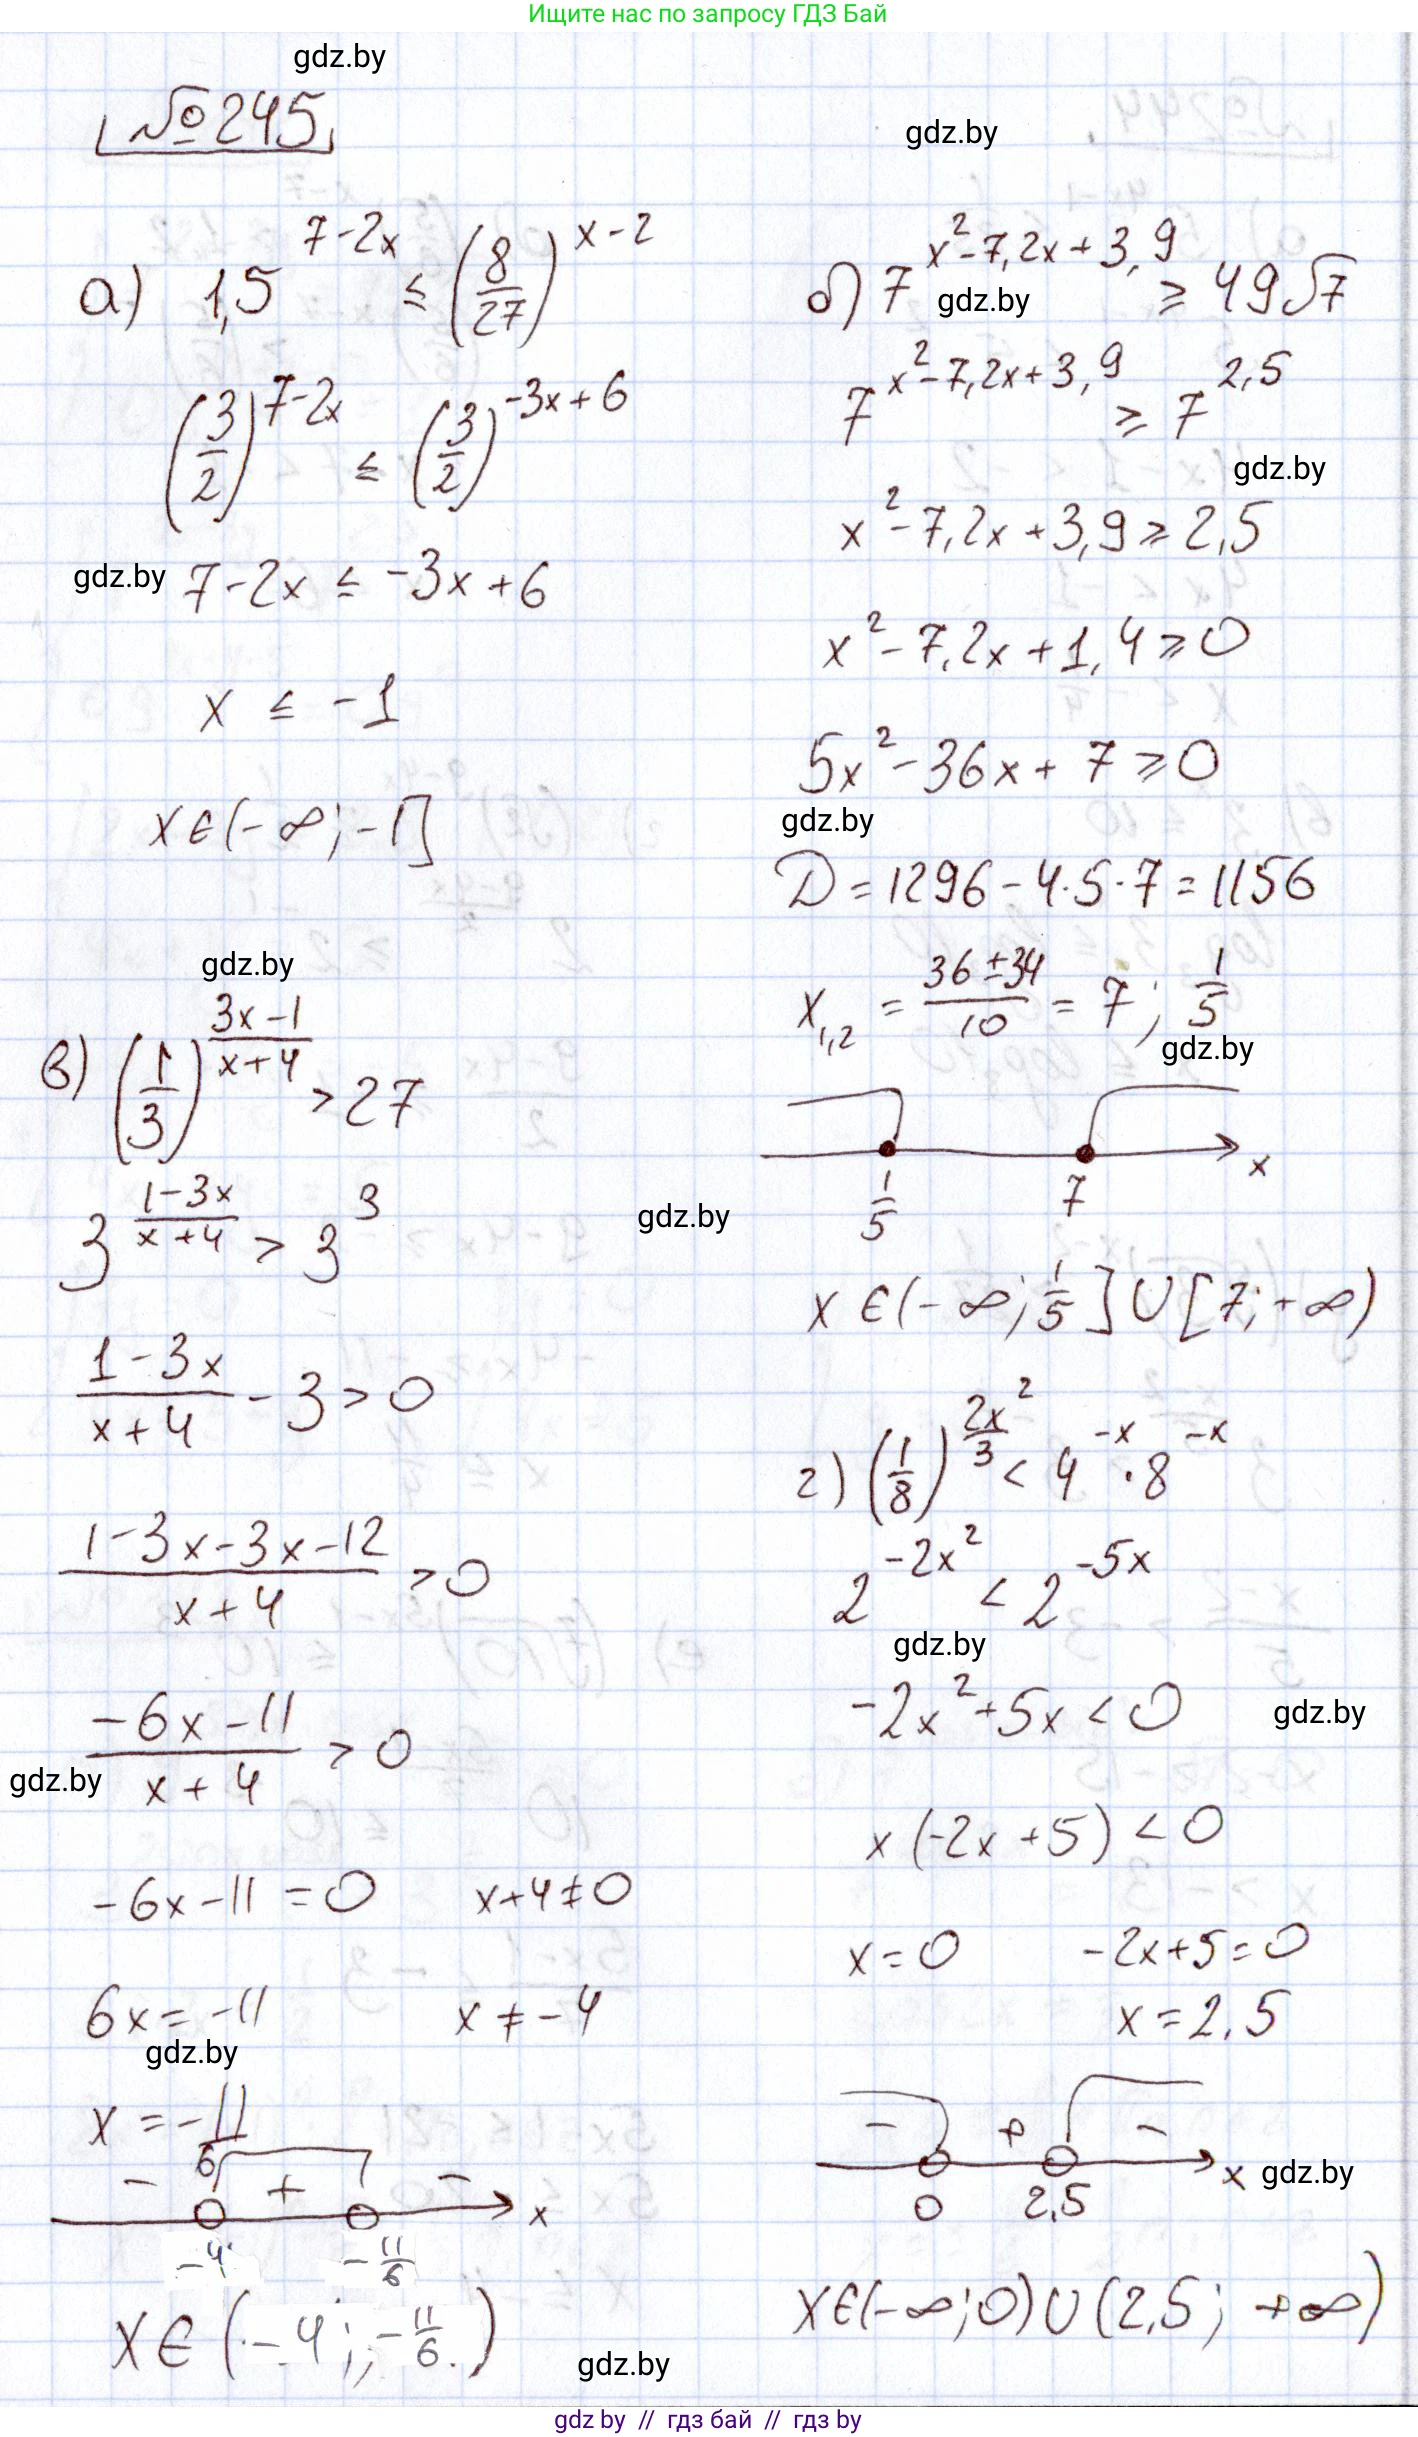 Ищите нас по запросу ГДЗ Бай
gdz.by
№245
gdz.by
а) 1,5^(7-2x) ≤ (8/27)^(x-2)
(3/2)^(7-2x) ≤ (3/2)^(-3x+6)
gdz.by
7-2x ≤ -3x+6
x ≤ -1
x∈(-∞;-1]
б) 7^(x²-7,2x+3,9) ≥ 49√7
gdz.by
7^(x²-7,2x+3,9) ≥ 7^(2,5)
gdz.by
x²-7,2x+3,9≥2,5
x²-7,2x+1,4≥0
5x²-36x+7≥0
gdz.by
D=1296-4·5·7=1156
x₁,₂ = (36±34)/10 = 7; 1/5
gdz.by
1/5 7 x
x∈(-∞;1/5]∪[7;+∞)
gdz.by
в) (1/3)^((3x-1)/(x+4)) > 27
3^((1-3x)/(x+4)) > 3³
gdz.by
(1-3x)/(x+4) - 3 > 0
(1-3x-3x-12)/(x+4) > 0
(-6x-11)/(x+4) > 0
gdz.by
-6x-11=0 x+4≠0
6x=-11 x≠-4
gdz.by
x=-11/6
- + - x
-4 -11/6
x∈(-4;-11/6)
г) (1/8)^(2x²/3) < 4^(-x)·8^(-x)
2^(-2x²) < 2^(-5x)
gdz.by
-2x²+5x<0
gdz.by
x(-2x+5)<0
x=0 -2x+5=0
x=2,5
- + - x
gdz.by
0 2,5
x∈(-∞;0)∪(2,5;+∞)
gdz.by
gdz by // гдз бай // гдз by